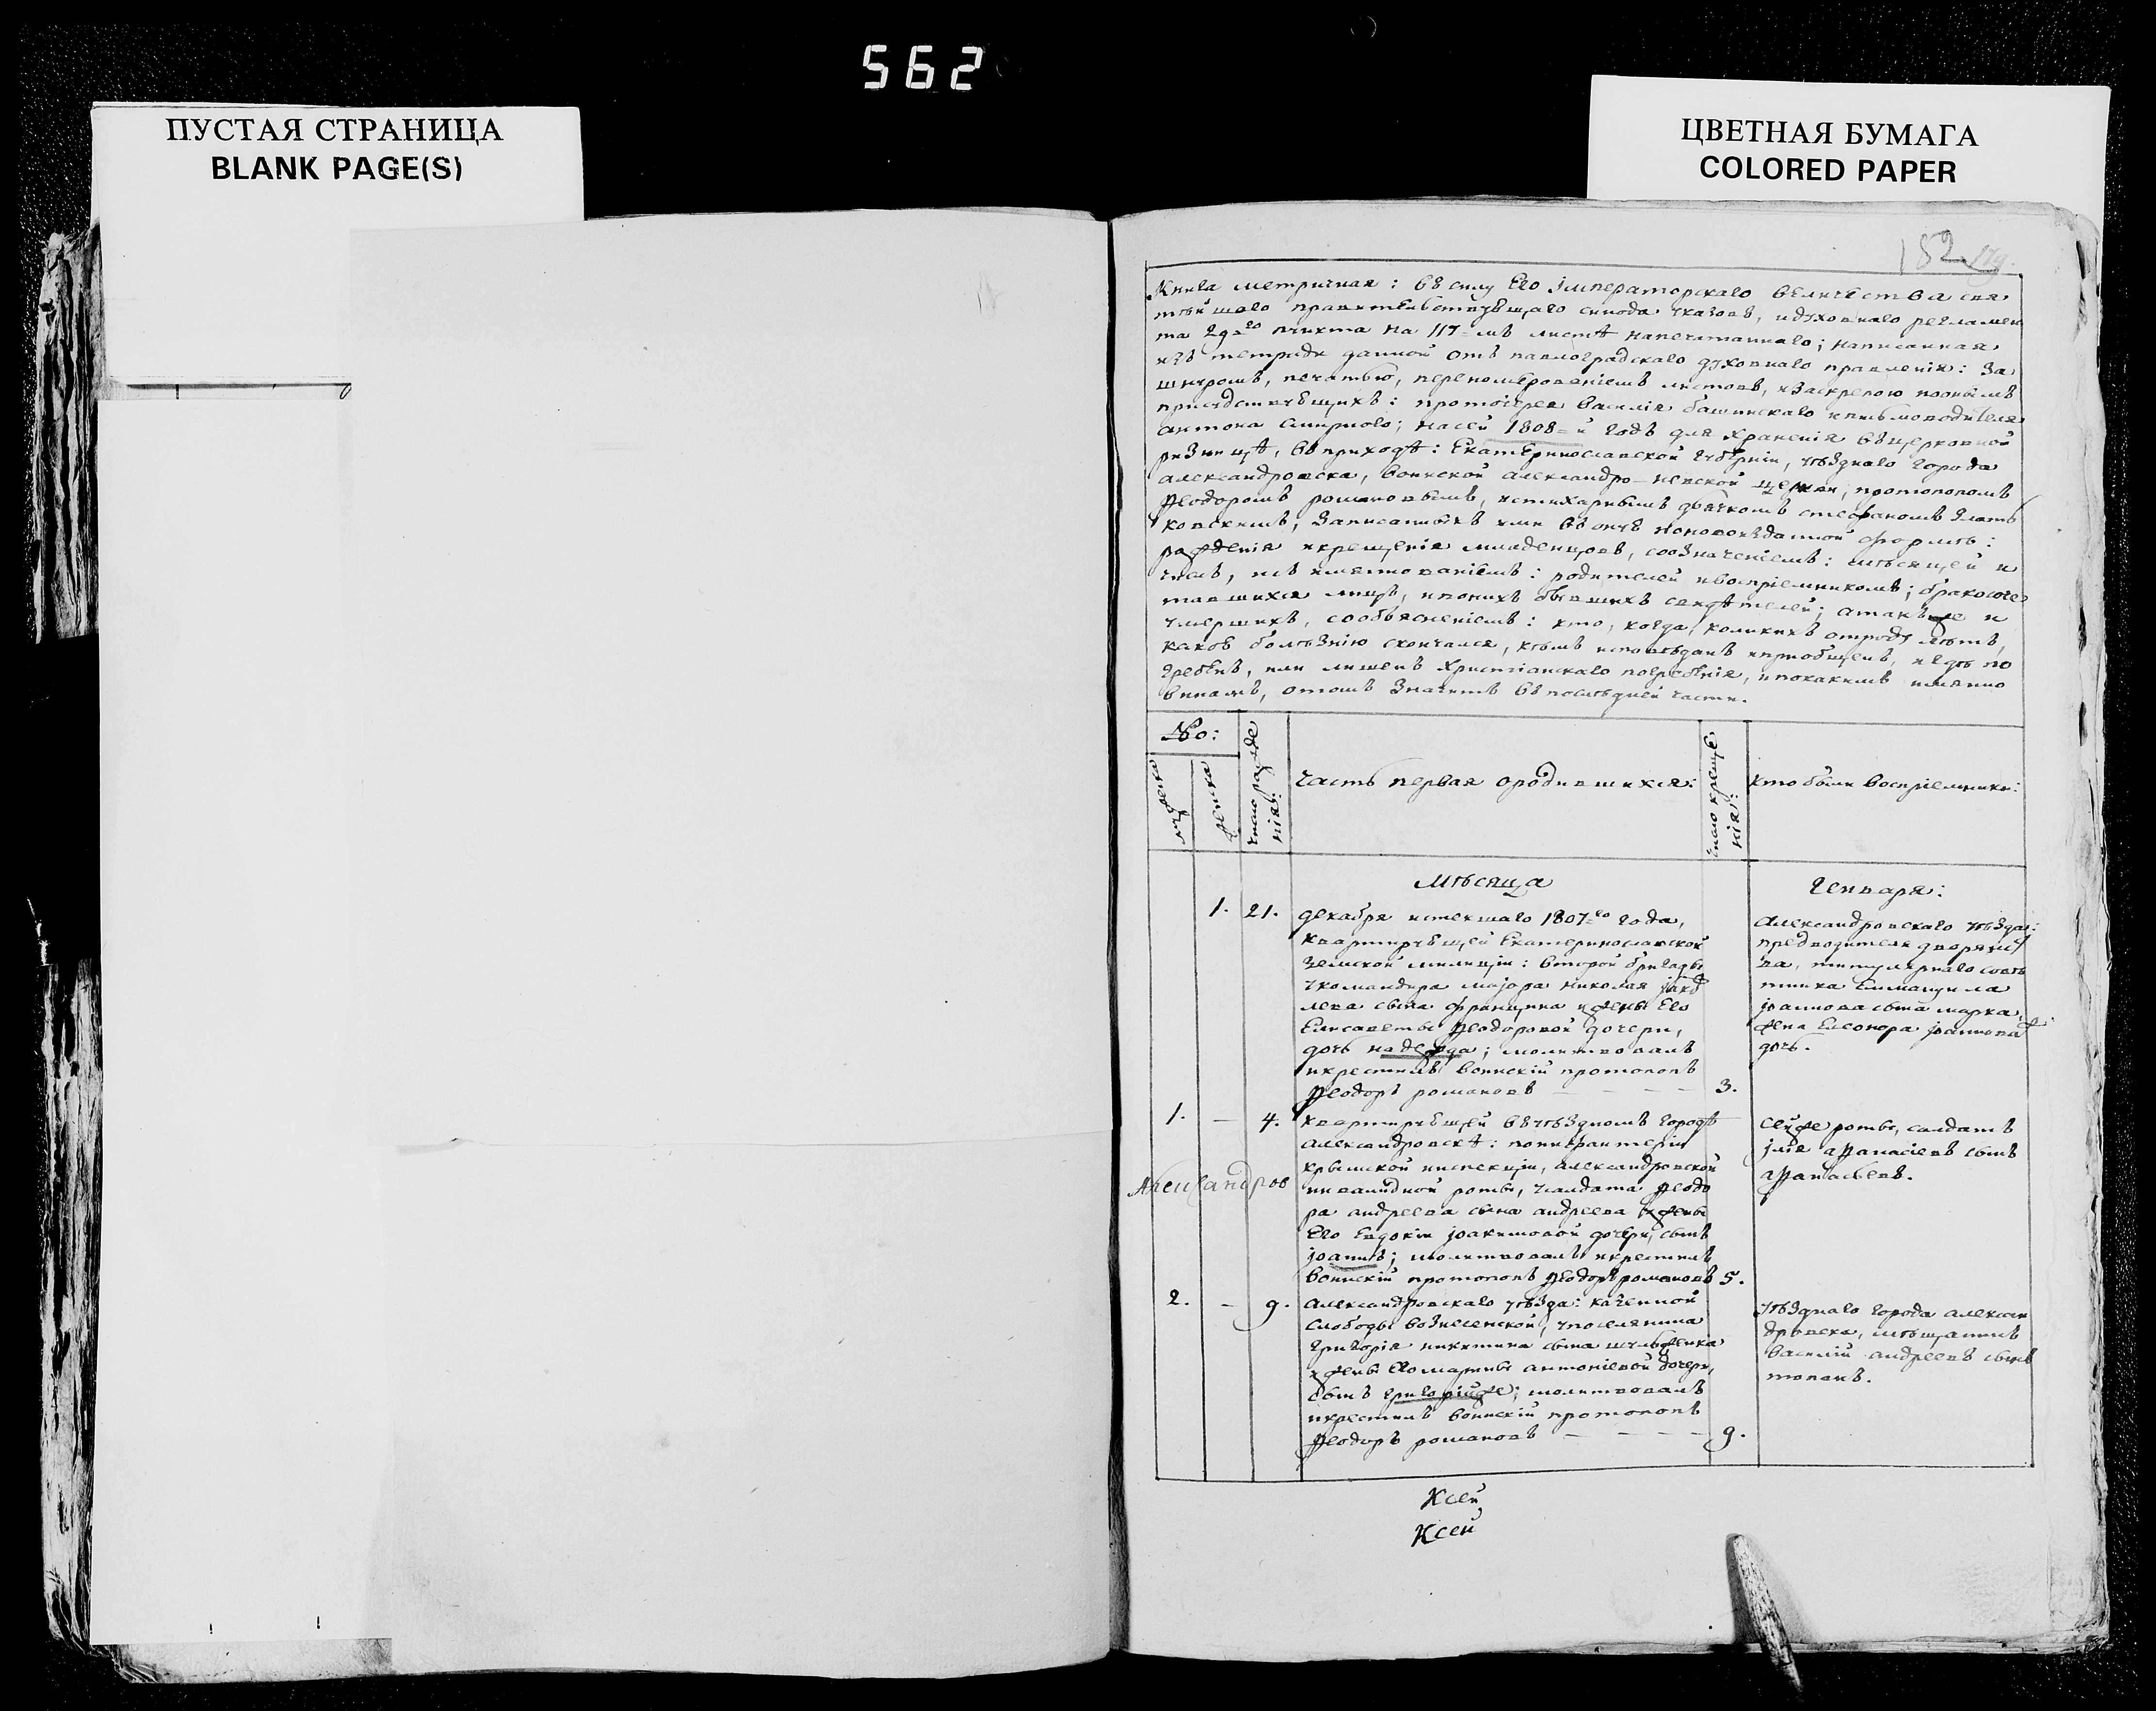 562
ПУСТАЯ СТРАНИЦА
BLANK PAGE(S)
ЦВЕТНАЯ БУМАГА
COLORED PAPER
182
Книга метричная: въ силу Его императорскаго величества свя
тѣйшаго правительствующаго синода указовъ, и духовнаго регламен
та 29го пункта на 117=мъ листѣ напечатаннаго; написанная,
изъ тетради данной отъ павлоградскаго духовнаго правленія: за
шнуромъ, печатью, перенумерованіемъ листовъ, и закрепою
присудствующихъ: протоіерея василія башинскаго и письмоводителя
антона смирного; на сей 1808=й годъ для храненія въ церковной
ризницѣ, въ приходѣ: Екатеринославской губерніи, уѣзднаго города
александровска, воинской александро-невской церкви, протопопомъ
Ѳеодоромъ романовымъ, и стихарнымъ дьячкомъ стефаномъ злат
ковскимъ, записанныхъ ими въ ону по форме:
рожденія и крещенія младенцовъ, со означеніемъ: мѣсяцей и
числъ, и съ имянованіемъ: родителей и воспріемниковъ; бракосоче
тавшихся лицъ, и по нихъ бывшихъ свидѣтелей; а такъже и
умершихъ, со объясненіемъ: кто, когда, коликихъ отроду лѣтъ,
какою болѣзнію скончался, кѣмъ исповѣданъ и приобщенъ, и гдѣ по
гребенъ, или лишенъ христіанскаго погребенія, и по какимъ имянно
винамъ, о томъ значитъ въ послѣдней части.
No:
мужеска
женска
число рожде
нія:
часть первая о родившихся:
число креще
нія:
кто были воспріемники:
Мѣсяца
Генваря:
1. 21.
декабря истекшаго 1807=го года,
квартирующей Екатеринославской
земской милиціи: второй бригады
у командира маіора николая яков
лева сына и жены его
Елисаветы Ѳеодоровой дочери,
дочь надежда; молитвовалъ
и крестилъ воинскій протопопъ
Ѳеодоръ романовъ
3.
Александровскаго уѣзда:
предводителя дворянст
ва, титулярнаго совѣ
тника Еммануила
іоаннова сына марка,
жена Елеонора іоаннова
дочь.
1. - 4.
квартирующей въ уѣздномъ городѣ
александровскѣ: по инфантеріи
крымской инспекціи, александровской
инвалидной роты, у солдата Ѳеодо
ра андреева сына андреева и жены
Его Евдокіи іоакимовой дочери, сынъ
іоаннъ; молитвовалъ и крестилъ
воинскій протопопъ Ѳеодоръ романовъ
5.
сей же роты, салдатъ
ілія аѲанасіевъ сынъ
аѲанасьевъ.
Александров
2. - 9.
александровскаго уѣзда: казенной
слободы вознесенской, у поселянина
григорія никитина сына
и жены Его марѳы антоніевой дочери,
сынъ григорій же; молитвовалъ
и крестилъ воинскій протопопъ
Ѳеодоръ романовъ
9.
уѣзднаго города алексан
дровска, мѣщанинъ
василій андреевъ сынъ
топчи.
Ксей
Ксей